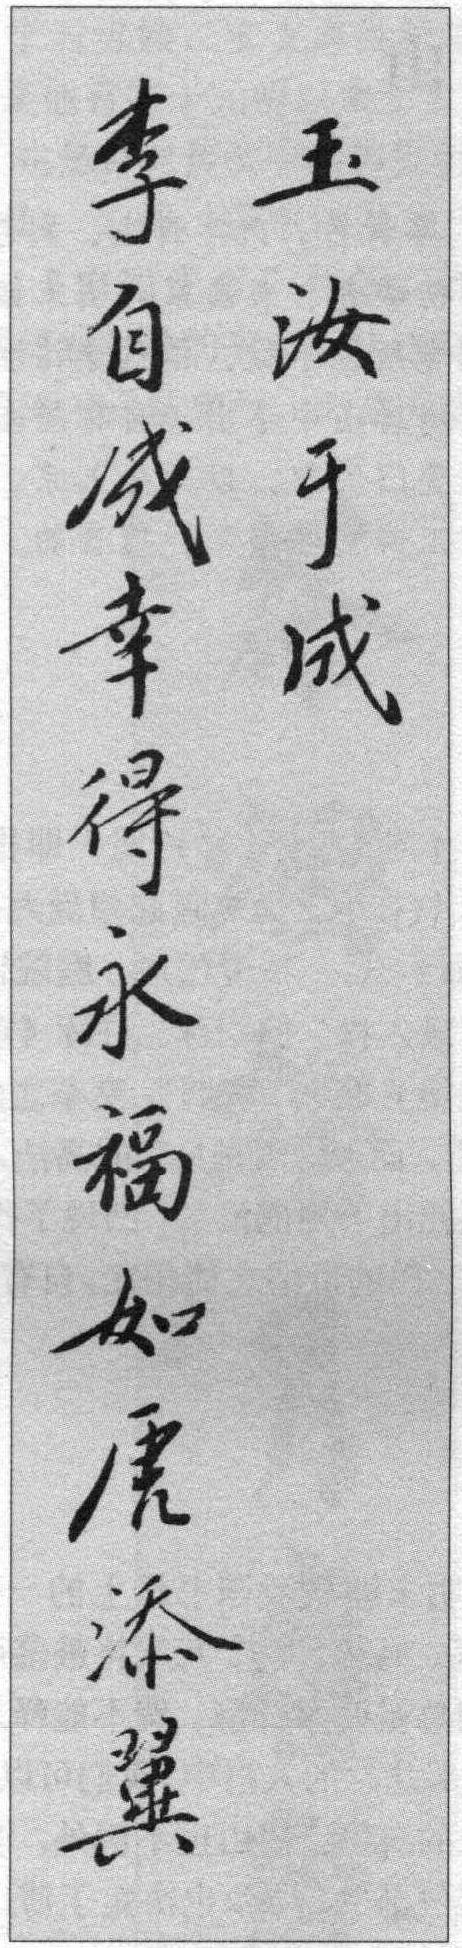 玉汝于成
李自成幸得永福如虎添翼